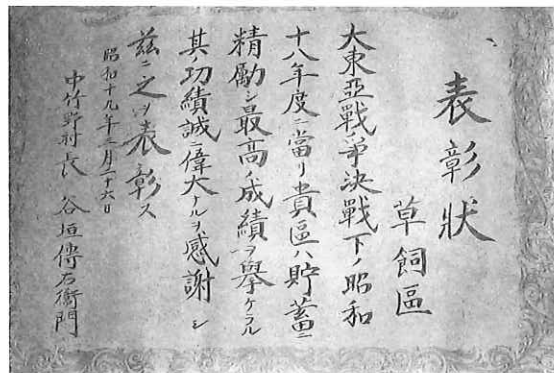 表彰狀
草飼區
大東亞戰爭決戰下ノ昭和
十八年度ニ當リ貴區ハ貯蓄ニ
精勵シ最高ノ成績ヲ擧ケラル
其ノ功績誠ニ偉大ナルヲ感謝シ
茲ニ之ヲ表彰ス
昭和十九年二月二十六日
中竹野村長 谷垣傳右衞門